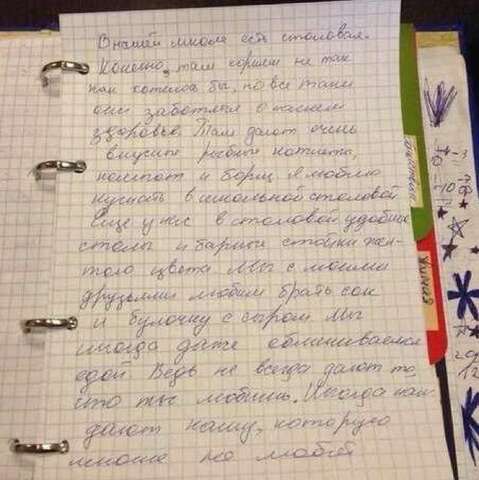 В нашей школе есть столовая.
Конечно, там кормят не так
как хотелось бы, но все таки
они заботятся о нашем
здоровье. Там дают очень
вкусные рыбные котлеты,
компот и борщ я люблю
кушать в школьной столовой
Еще у нас в столовой удобные
столы и барные стойки жел-
того цвета Мы с моими
друзьями любим брать сок
и булочку с сыром Мы
иногда даже обмениваемся
едой. Ведь не всегда дают то,
что ты любишь. Иногда нам
дают кашу, которую
многие не любят